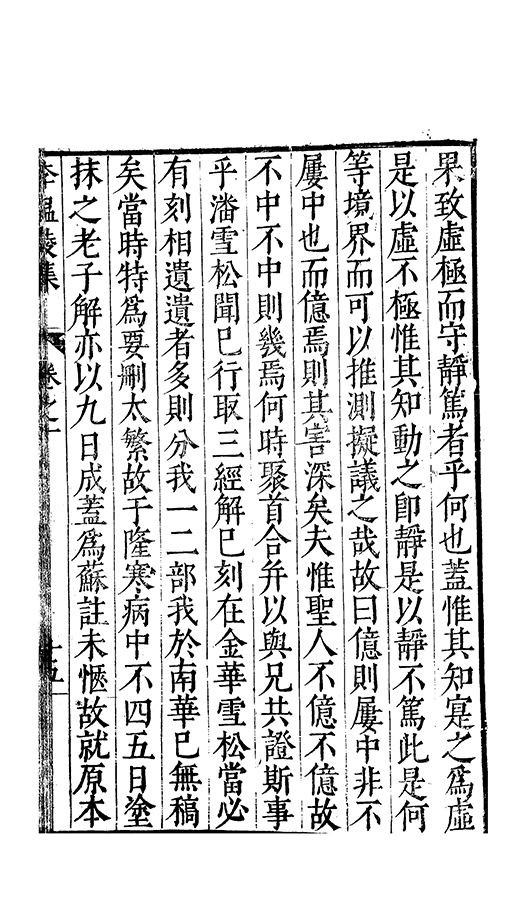 果致虛極而守靜篤者乎何也蓋惟其知寔之為虛
是以虛不極惟其知動之卽靜是以靜不篤此是何
等境界而可以推測擬議之哉故曰億則屢中非不
屢中也而億焉則其害深矣夫惟聖人不億不億故
不中不中則幾焉何時聚首合并以與兄共證斯事
乎潘雪松聞已行取三經解已刻在金華雪松當必
有刻相遺遺者多則分我一二部我於南華已無稿
矣當時特為要刪太繁故于隆寒病中不四五日塗
抹之老子解亦以九日成蓋為蘇註未愜故就原本
李溫陵集 卷之一 十五